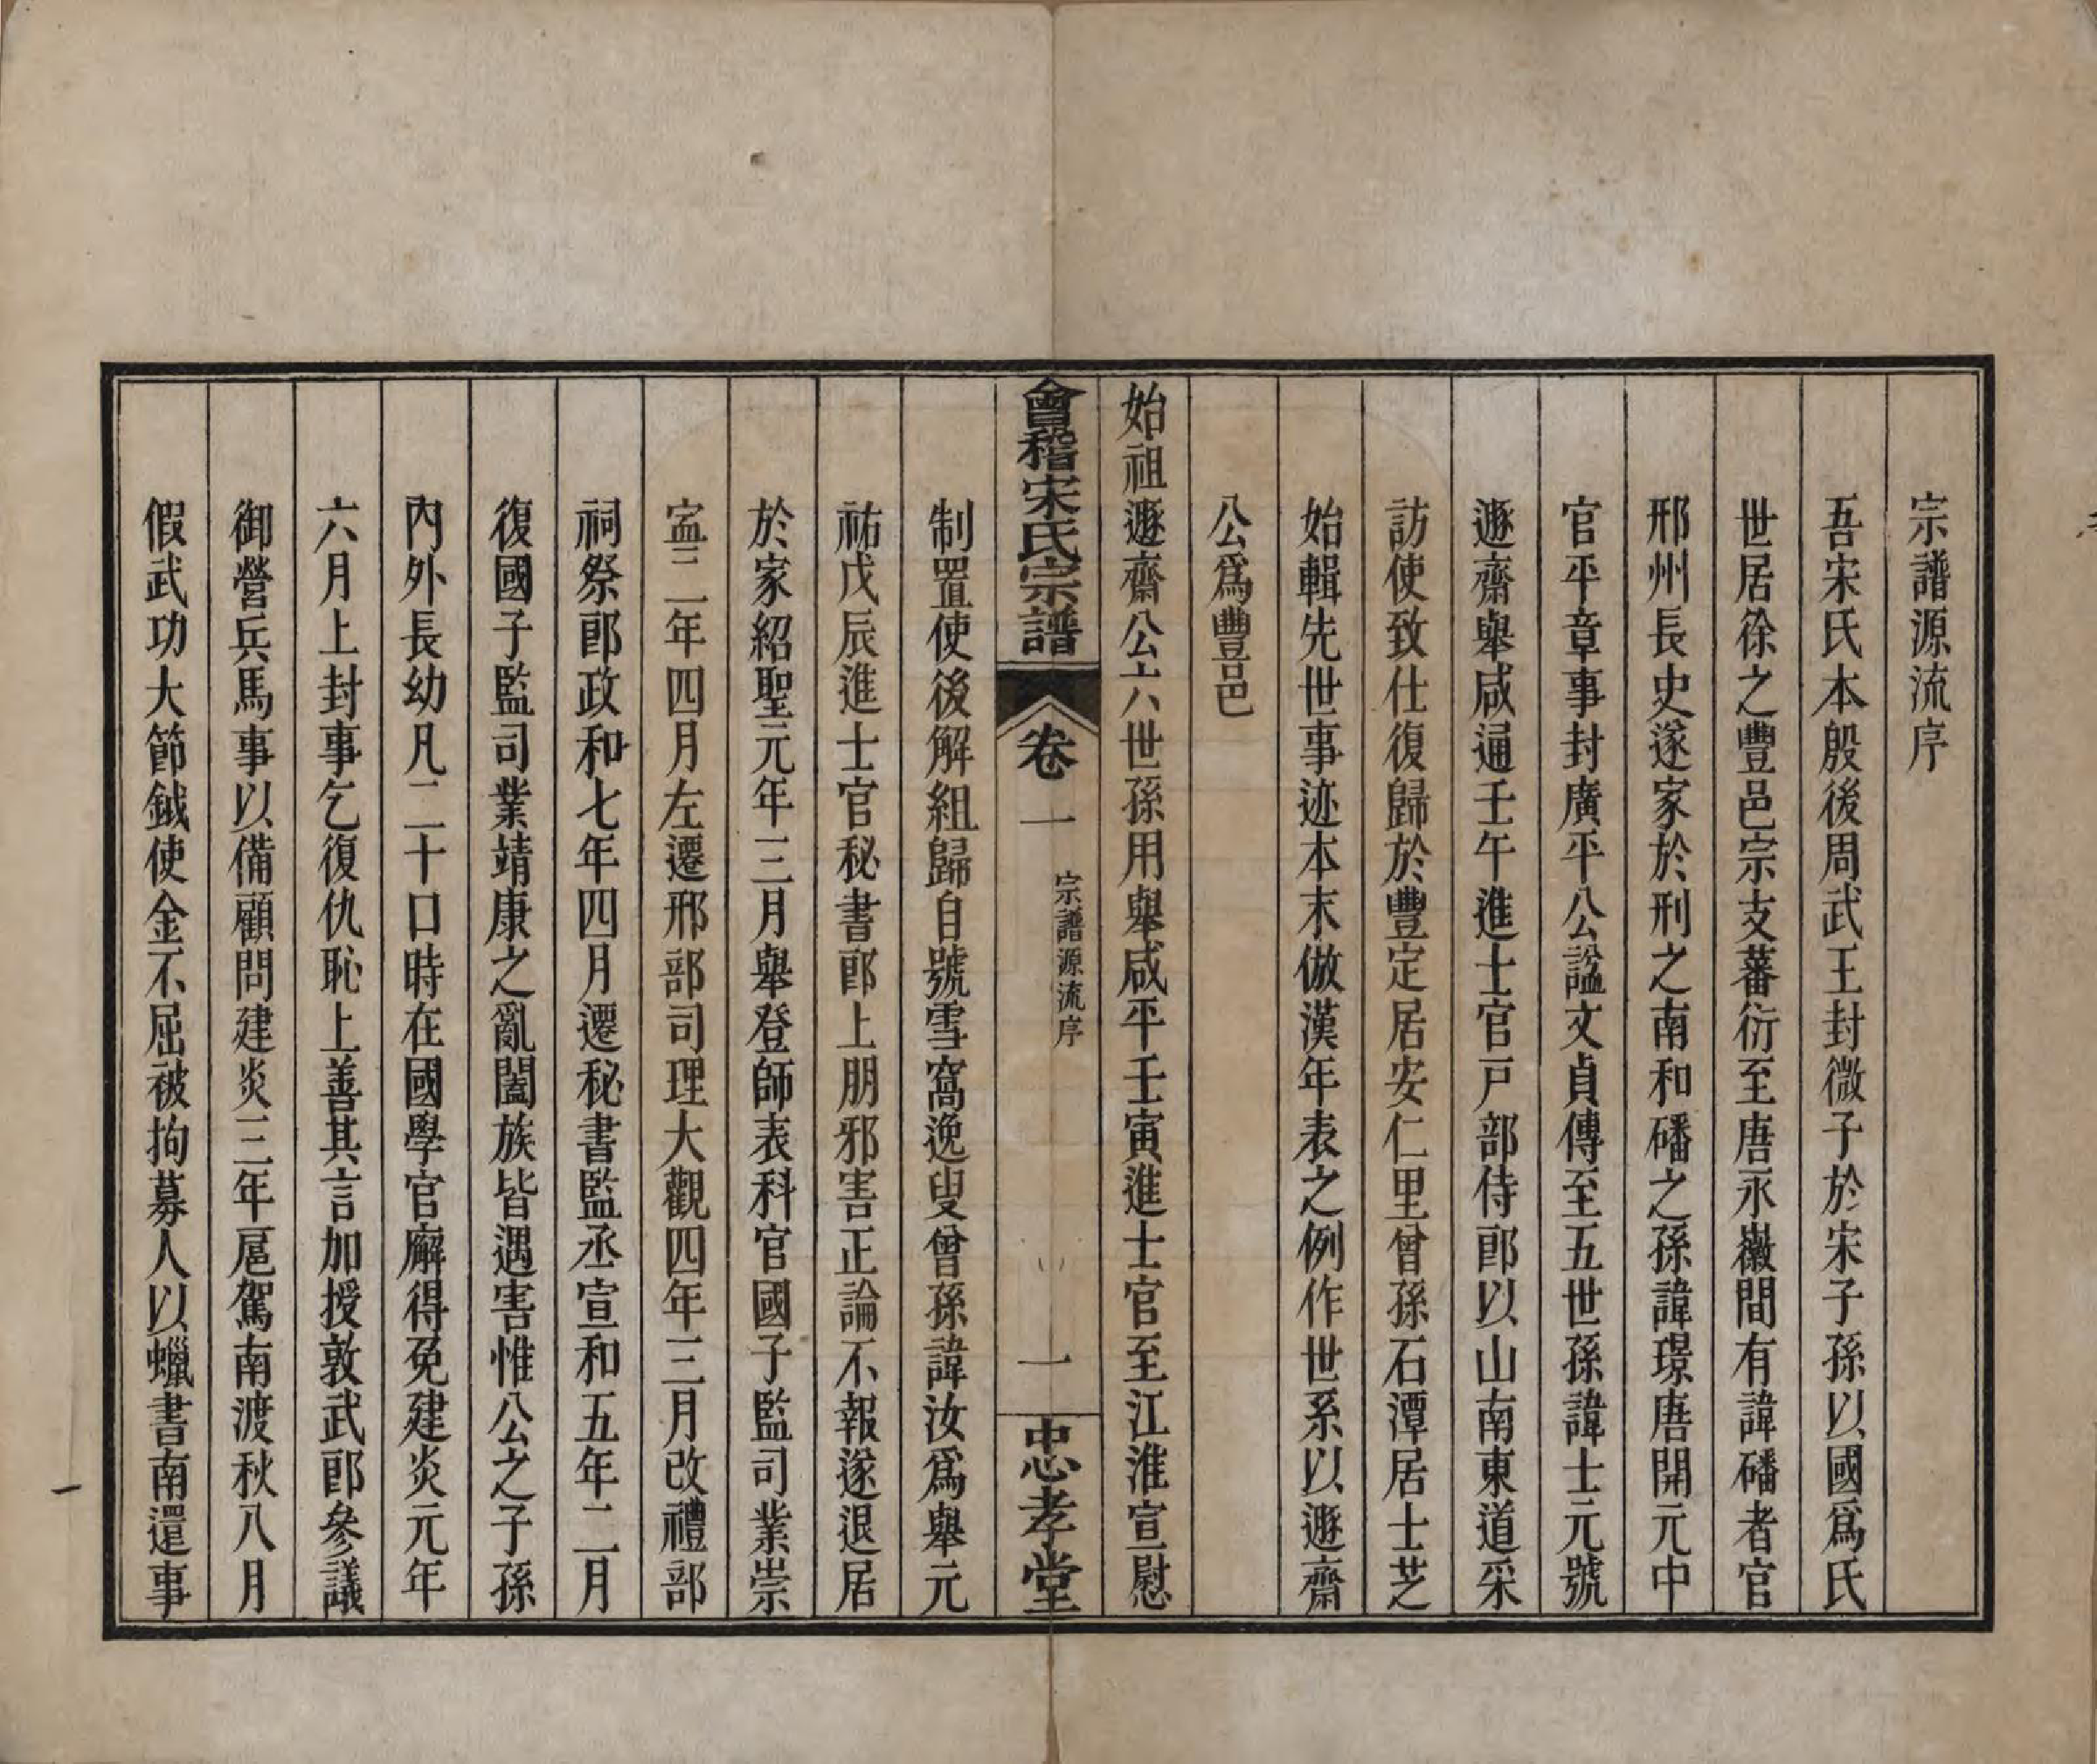 宗譜源流序
吾宋氏本殷後周武王封微子於宋子孫以國爲氏
世居徐之豐邑宗支蕃衍至唐永徽間有諱磻者官
邢州長史遂家於刑之南和磻之孫諱璟唐開元中
官平章事封廣平公諡文貞傳至五世孫諱士元號
遯齋舉咸通壬午進士官戸部侍郎以山南東道采
訪使致仕復歸於豐定居安仁里曾孫石潭居士芝
始輯先世事迹本末倣漢年表之例作世系以遯齋
公爲豐邑
始祖遯齋公六世孫用舉咸平壬寅進士官至江淮宣慰
會稽宋氏宗譜
卷一
宗譜源流序
一
忠孝堂
制置使後解組歸自號雪窩逸叟曾孫諱汝爲舉元
祐戊辰進士官秘書郎上朋邪害正論不報遂退居
於家紹聖元年三月舉登師表科官國子監司業崇
寍二年四月左遷邢部司理大觀四年三月改禮部
祠祭郎政和七年四月遷秘書監丞宣和五年二月
復國子監司業靖康之亂闔族皆遇害惟公之子孫
內外長幼凡二十口時在國學官廨得免建炎元年
六月上封事乞復仇恥上善其言加授敦武郎參議
御營兵馬事以備顧問建炎三年扈駕南渡秋八月
假武功大節鉞使金不屈被拘募人以蠟書南還事